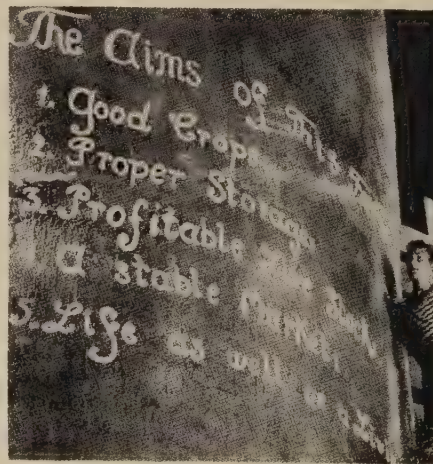 The Aims Of This
1. Good Crops
2. Proper Storage
3. Profitable Live Stock
a stable Market
5. Life as well as a